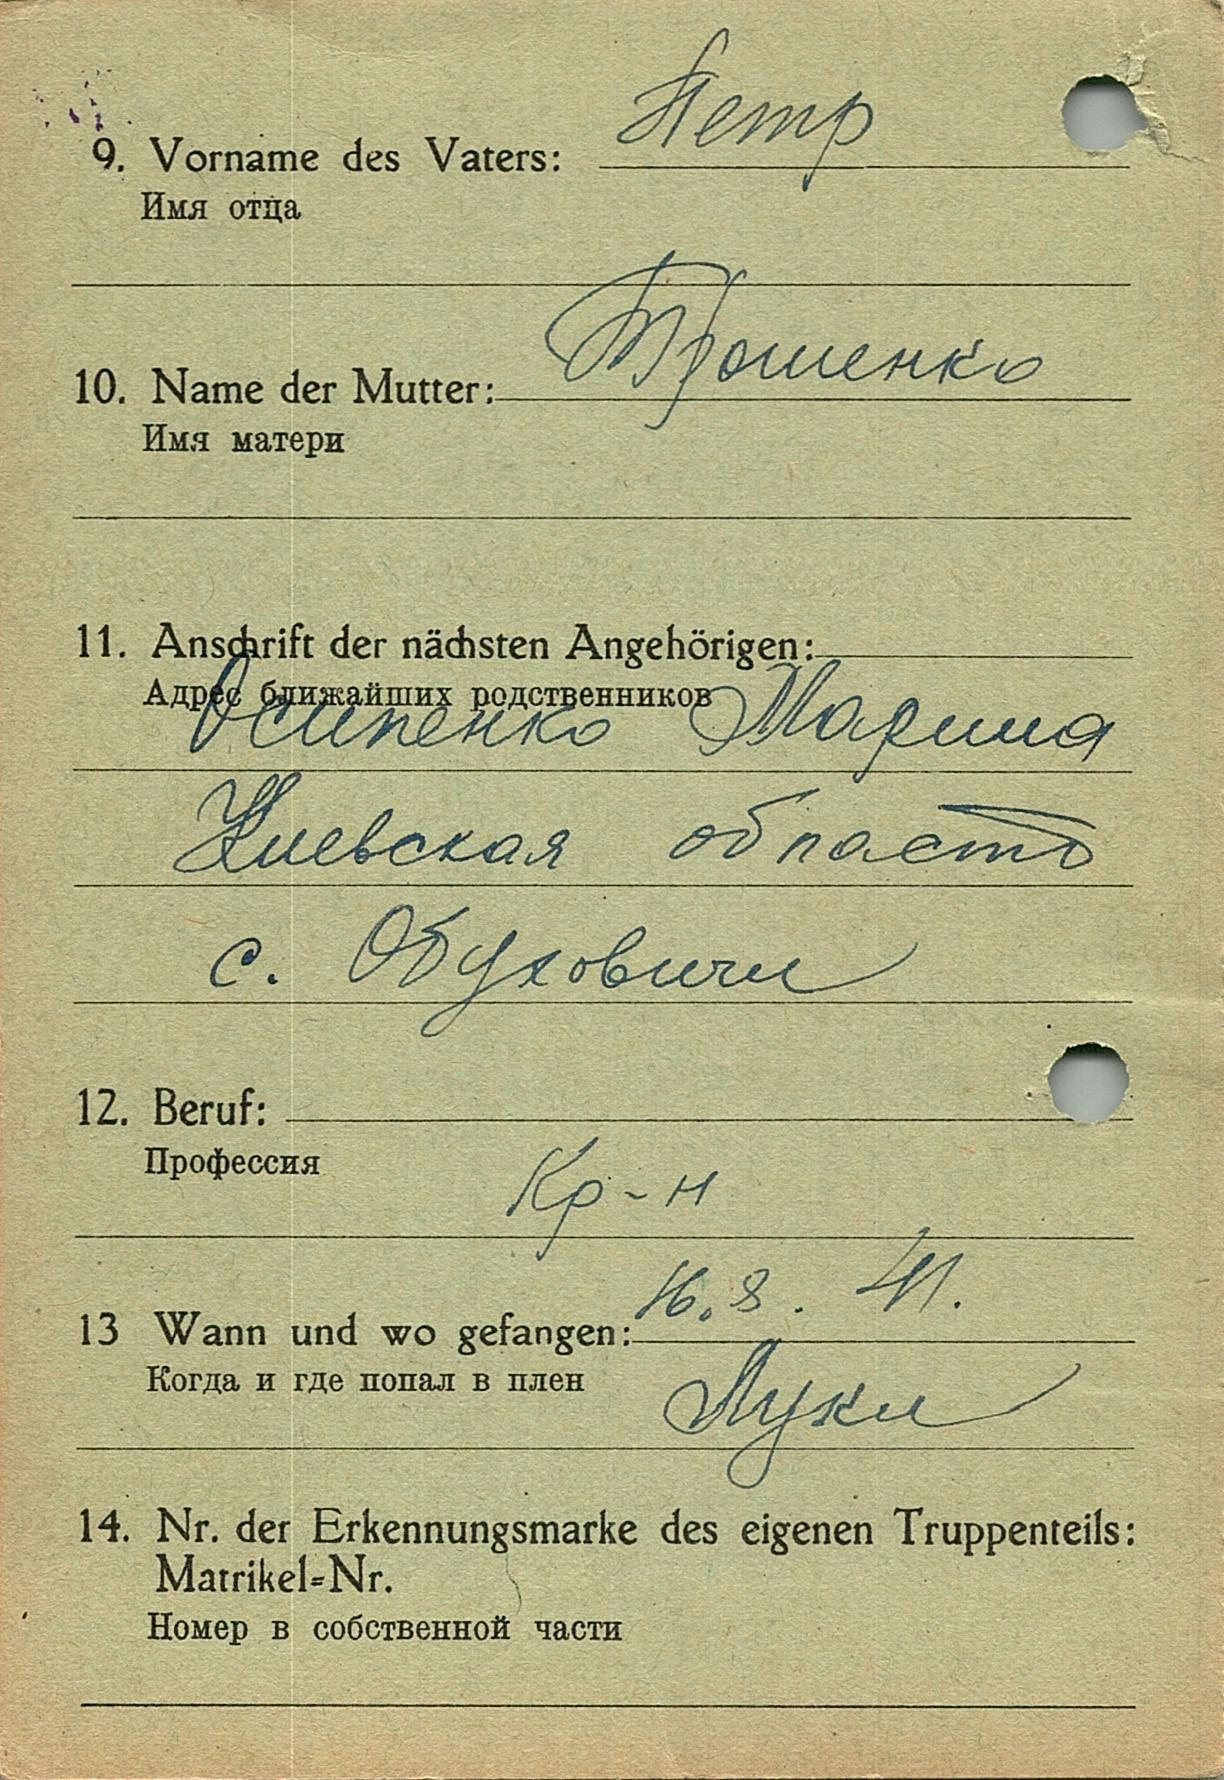 Петр
9. Vorname des Vaters:
Имя отца
Трошенко
10. Name der Mutter:
Имя матери
11. Anschrift der nächsten Angehörigen:
Адрес ближайших родственников
Осипенко Марина
Киевская область
с. Обуховичи
12. Beruf:
Профессия
Кр-н
16.8. 41.
13 Wann und wo gefangen:
Когда и где попал в плен
Луки
14. Nr. der Erkennungsmarke des eigenen Truppenteils:
Matrikel-Nr.
Номер в собственной части